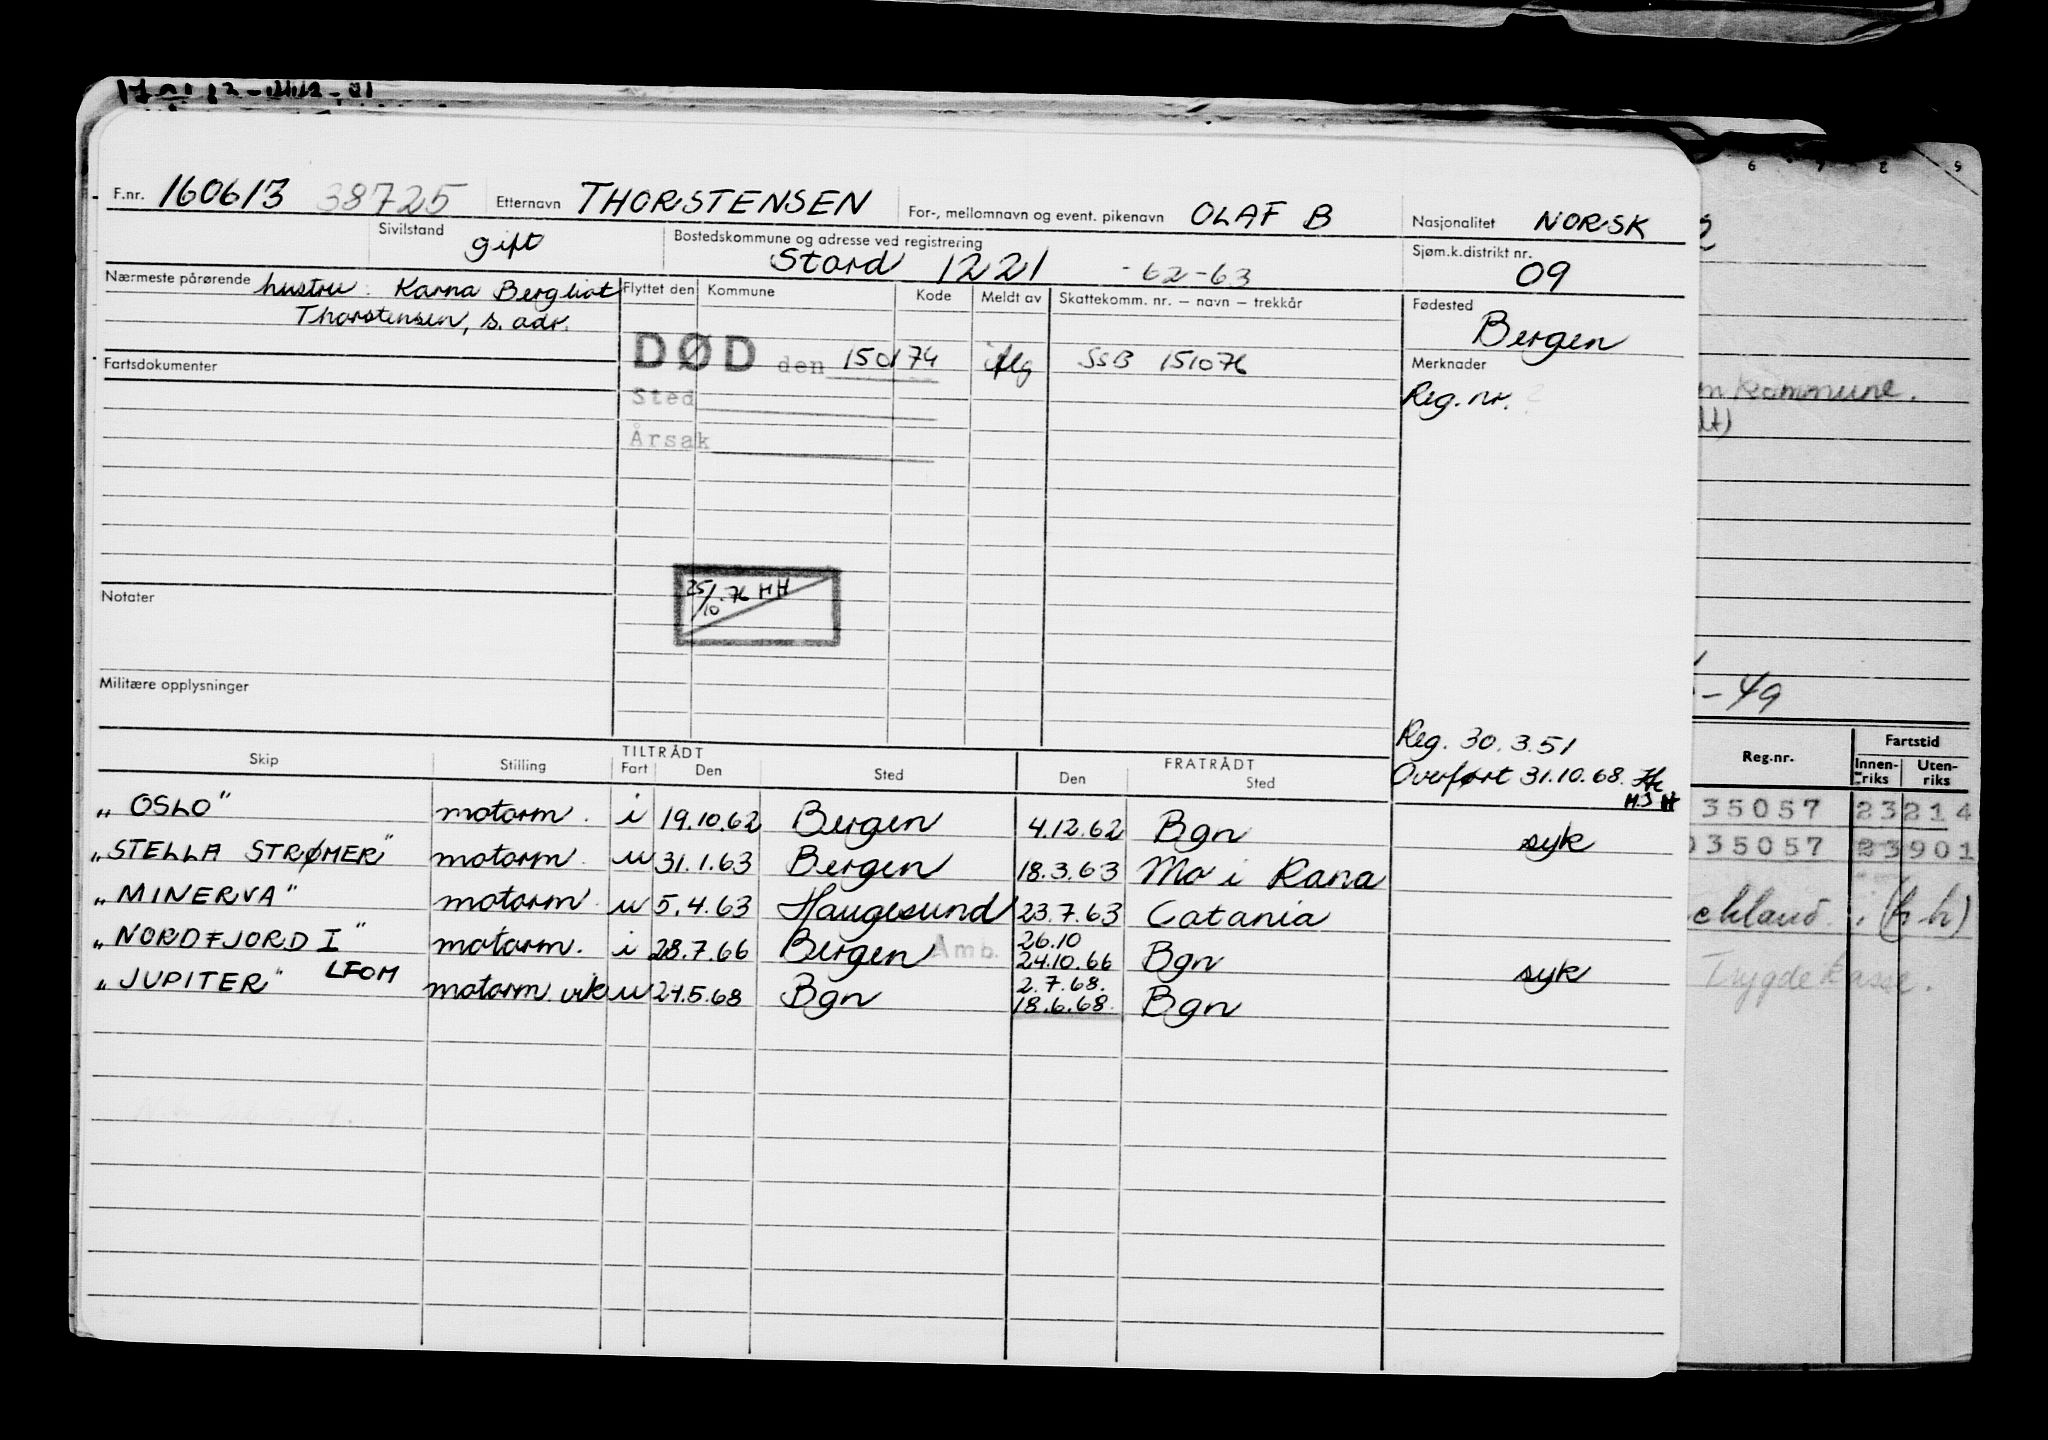 F.nr. 160613 38725 Etternavn THORSTENSEN For-, mellomnavn og event. pikenavn OLAF B Nasjonalitet NORSK
Sivilstand gift Bostedskommune og adresse ved registrering Stord 1221 -62-63 Sjøm.k.distrikt nr. 09
Nærmeste pårørende hustru: Karna Bergliot Flyttet den Kommune Kode Meldt av Skattekomm. nr. – navn – trekkår Fødested
Thorstensen, s. adr. Bergen
Fartsdokumenter DØD den 150174 SSB 151076 Merknader
Sted Reg. nr.
Årsak
25/10.76 HH
Notater
Militære opplysninger
Reg. 30.3.51
Overført 31.10.68.
Skip Stilling TILTRÅDT Fart Den Sted FRATRÅDT Den Sted
"OSLO" motorm. i 19.10.62 Bergen 4.12.62 Bgn syk
"STELLA STRØMER" motorm. u 31.1.63 Bergen 18.3.63 Mo i Rana
"MINERVA" motorm. u 5.4.63 Haugesund 23.7.63 Catania
"NORDFJORD I" motorm. i 28.7.66 Bergen Amb. 26.10 24.10.66 Bgn syk
"JUPITER" LFOM motorm. vik u 27.5.68 Bgn 2.7.68. 18.6.68. Bgn
6 7 8 9
m kommune.
- 49
Reg.nr. Fartstid
Innen-riks Uten-riks
35057 23 214
035057 23 901
ckland. i (h h)
Trygdekasse.